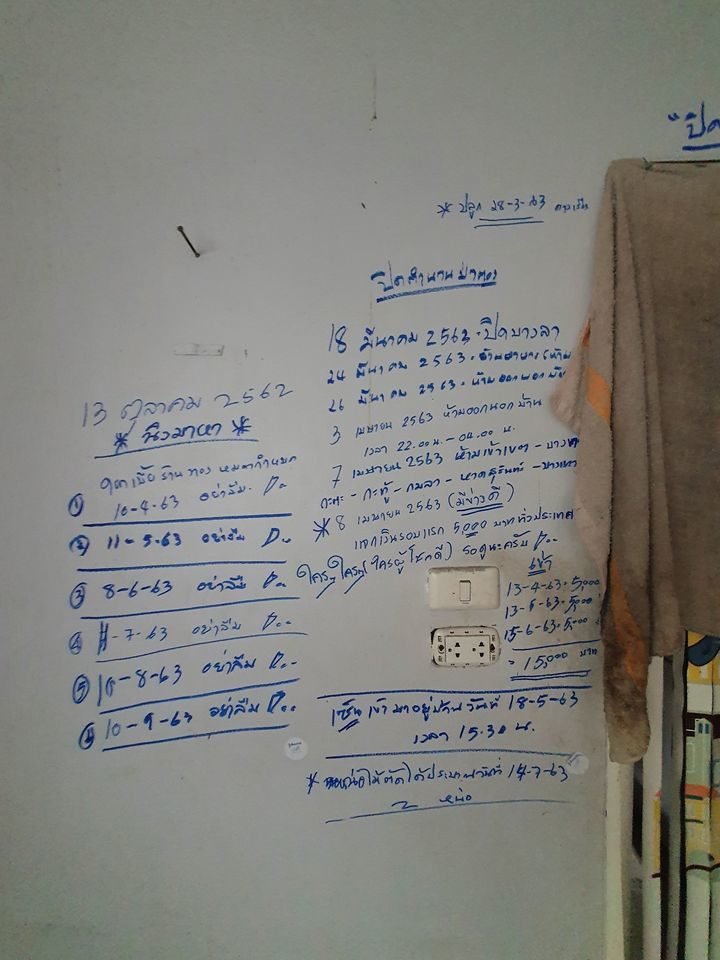 "ปิด
* ปลูก 28-3-63
ปิดตำนานป่าตอง
18 มีนาคม 2563 - ปิดบางลา
24 มีนาคม 2563 -
26 มีนาคม 2563 - ห้ามออกนอก
3 เมษายน 2563 ห้ามออกนอกบ้าน
เวลา 22.00 น. - 04.00 น.
7 เมษายน 2563 ห้ามเข้าเขต - บาง
กะตะ - กะทู้ - กมลา - หาดสุรินทร์ - บางเทา
* 8 เมษายน 2563 (มีข่าวดี)
แจกเงินรอบแรก 5,000 บาท ทั่วประเทศ
ใครๆ ใครๆ (ใครผู้โชคดี) รอดูนะครับ
เข้า
13-4-63 = 5,000
13-5-63 = 5,000
15-6-63 = 5,000
= 15,000 บาท
เข้ามาอยู่บ้าน วันที่ 18-5-63
เวลา 15.30 น.
* ให้ตัดได้ประมาณวันที่ 14-7-63
2 หน่อ
13 ตุลาคม 2562
* นิงมาหา *
ร้านทอง หมดกำหนด
① 10-4-63 อย่าลืม
② 11-5-63 อย่าลืม
③ 8-6-63 อย่าลืม
④ 11-7-63 อย่าลืม
⑤ 10-8-63 อย่าลืม
⑥ 10-9-63 อย่าลืม